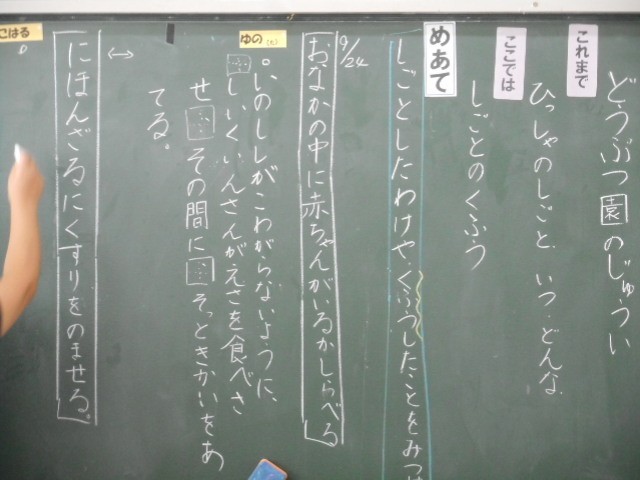 どうぶつ園のじゅうい
これまで
ひっしゃのしごと、いつ・どんな
ここでは
しごとのくふう
めあて
しごとしたわけや、くふうしたことをみつけ
9/24
おなかの中に赤ちゃんがいるかしらべる
ゆの
いのししがこわがらないように、
しいくいんさんがえさを食べさ
せ その間に そっときかいをあ
てる。
↔
にほんざるにくすりをのませる。
こはる